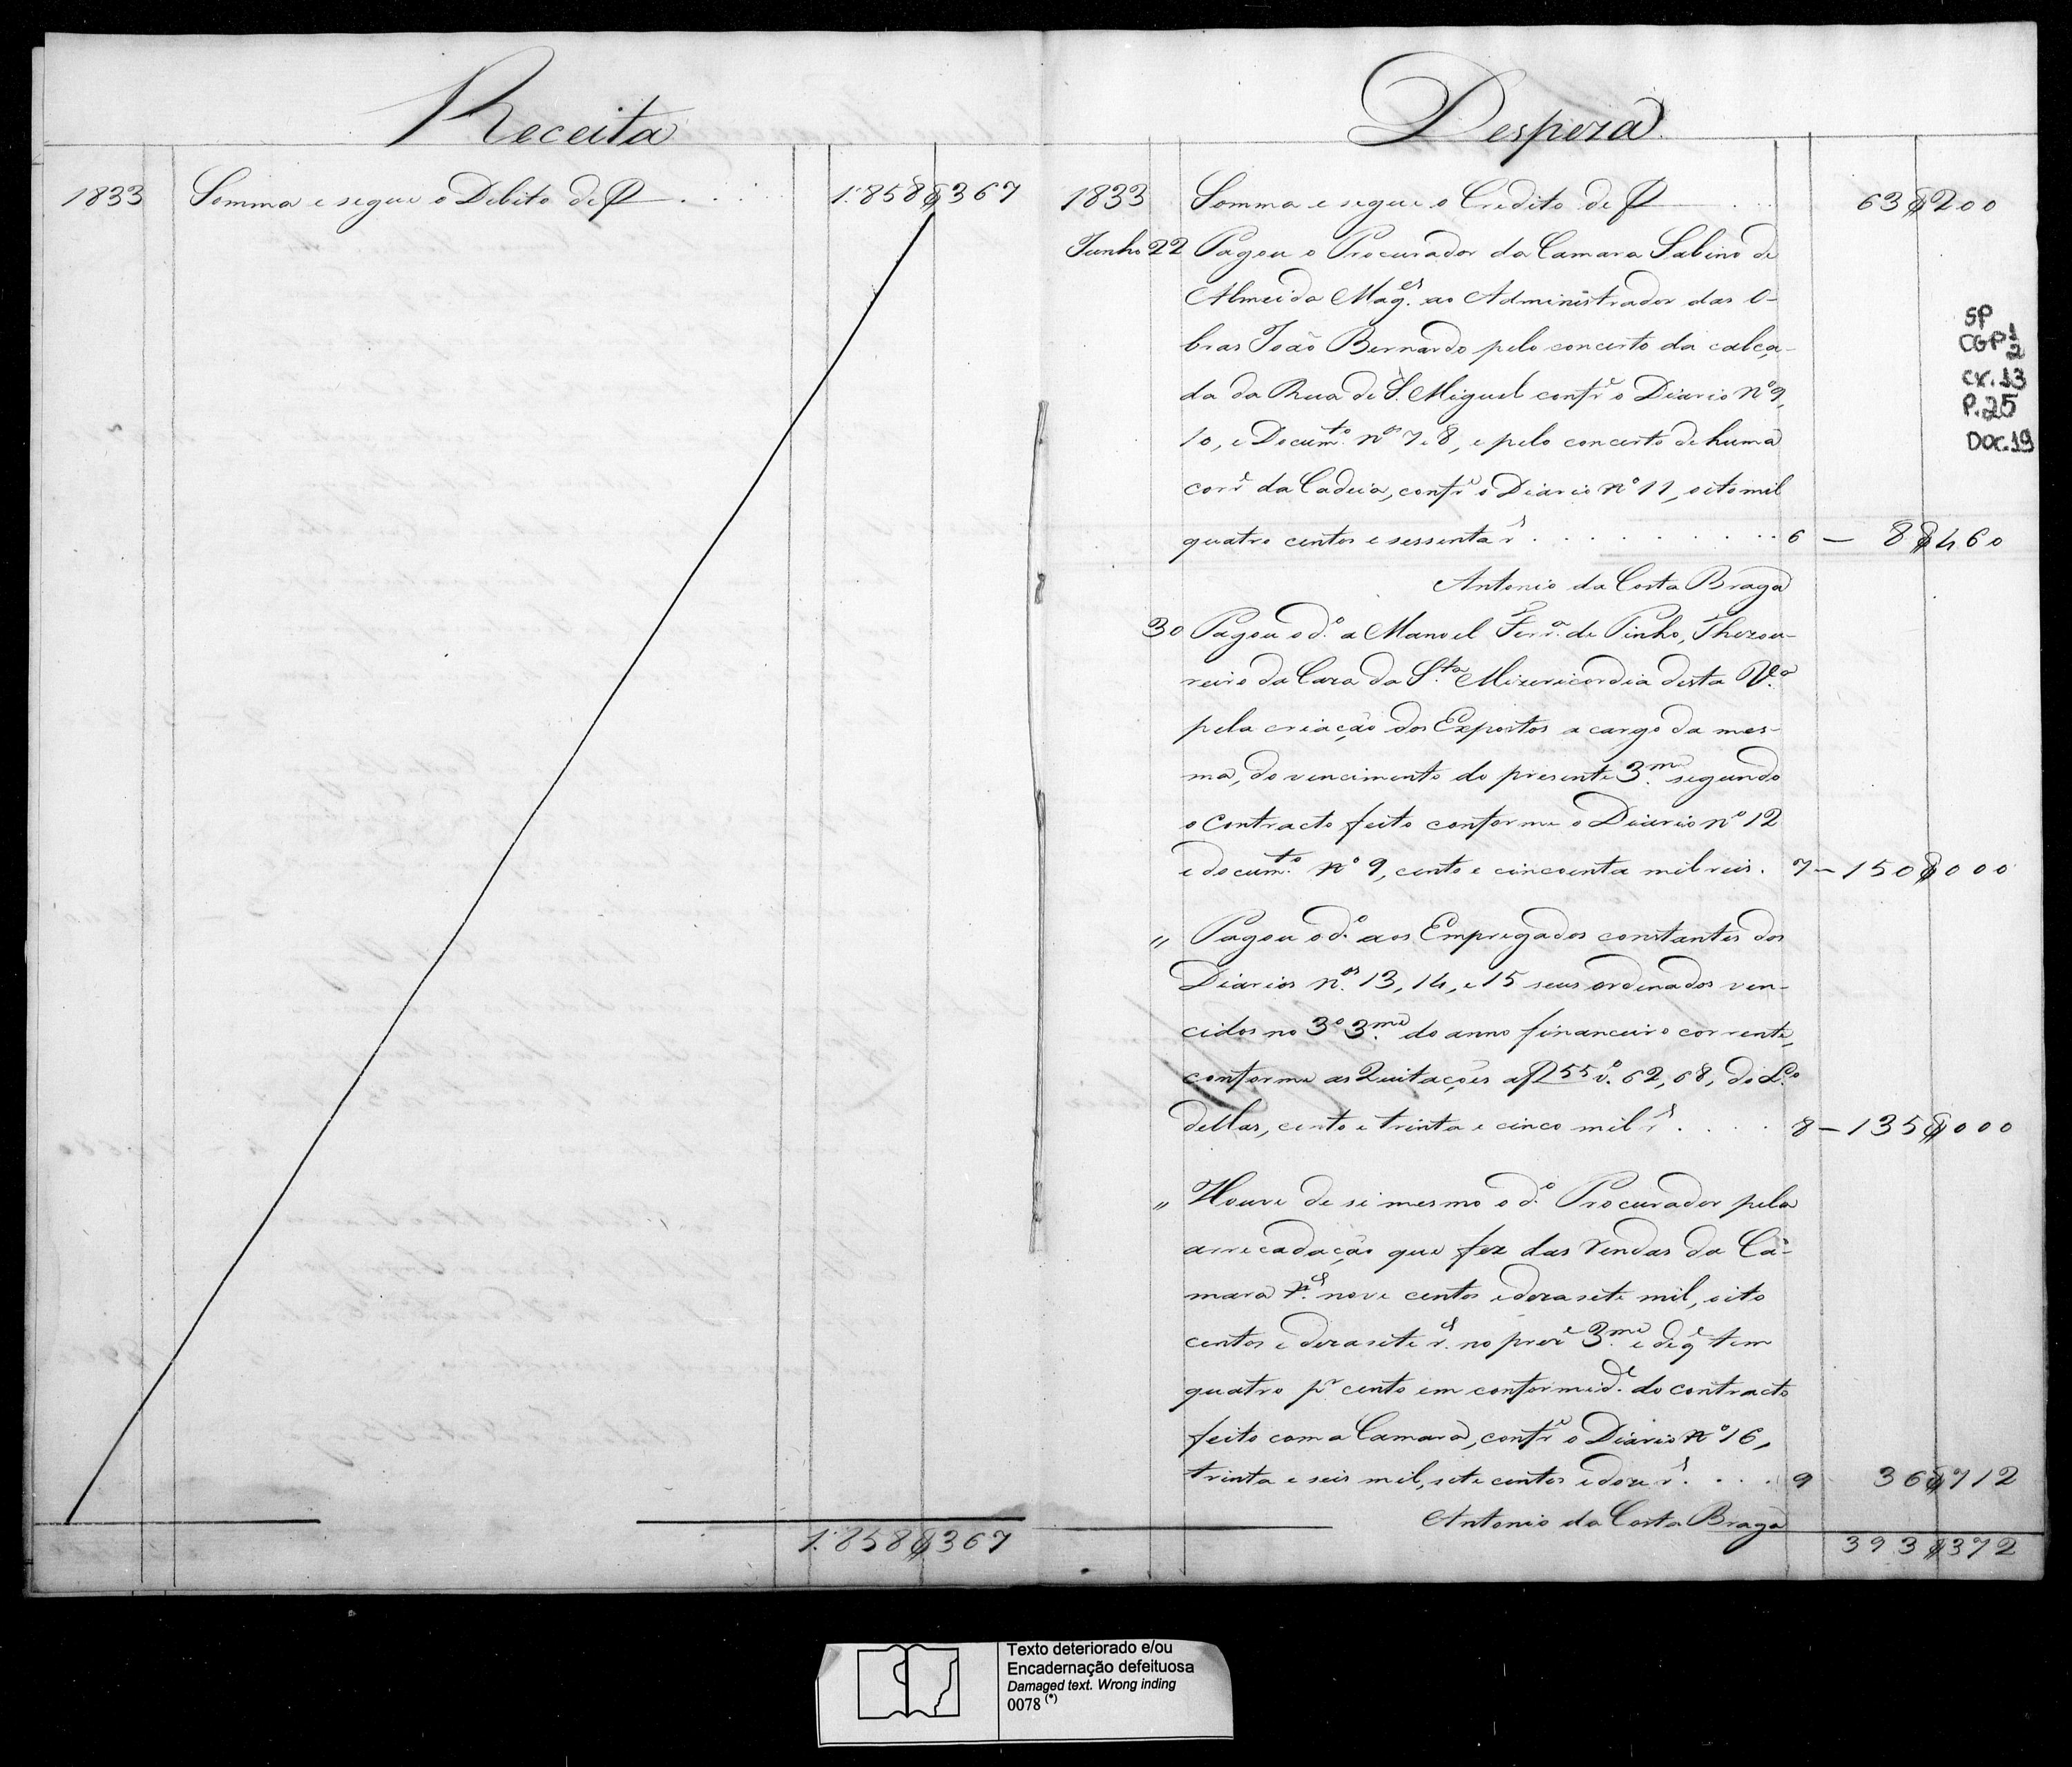 Receita
1833 Somma e segue o Debito de f 1:858$367
1:858$367
Despeza
1833 Somma e segue o Credito de f 63$200
Junho 22 Pagou o Procurador da Camara Sabino de
Almeida Mag.es ao Administrador das O-
bras João Bernardo pelo concerto da calça-
da da Rua de S. Miguel confr.e o Diario Nº 9,
10, e Docum.to nos 7 e 8, e pelo concerto de huma
corr.e da Cadeia, confr.e o Diario Nº 11, oito mil
quatro centos e sessenta r.s 6 — 8$460
Antonio da Costa Braga
30 Pagou o d.º a Manoel Ferr.a de Pinho, Thezou-
reiro da Caza da S.ta Mizericordia desta V.a
pela criação dos Expostos a cargo da mes-
ma, do vencimento do presente 3.me segundo
o Contracto feito conforme o Diario nº 12
e docum.to Nº 9, cento e cincoenta mil reis. 7 — 150$000
" Pagou o d.º aos Empregados constantes dos
Diarios N.os 13, 14, e 15 seus ordenados ven-
cidos no 3º 3.me do anno financeiro corrente,
conforme as Quitações a f 55 v.º 62, 68, do L.º
dellas, cento e trinta e cinco mil r.s 8 — 135$000
" Houve de si mesmo o d.º Procurador pela
arrecadação que fez das rendas da Ca-
mara r.es nove centos e deza sete mil, oito
centos e deza sete r.es no prez.e 3.me e de q̃ tem
quatro p.r cento em conformid.e do contracto
feito com a Camara, confr.e o Diario Nº 16,
trinta e seis mil, sete centos e doze r.s 9 36$712
Antonio da Costa Braga
393$372
SP
CGP 1/2
CX.13
P.25
DOC.19
Texto deteriorado e/ou
Encadernação defeituosa
Damaged text. Wrong inding
0078 (*)